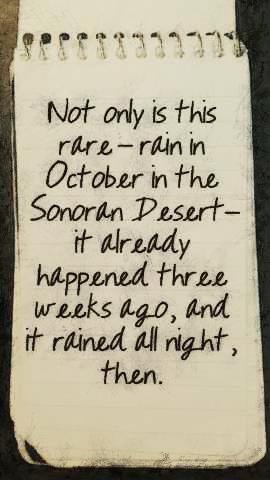 Not only is this
rare – rain in
October in the
Sonoran Desert–
it already
happened three
weeks ago, and
it rained all night,
then.